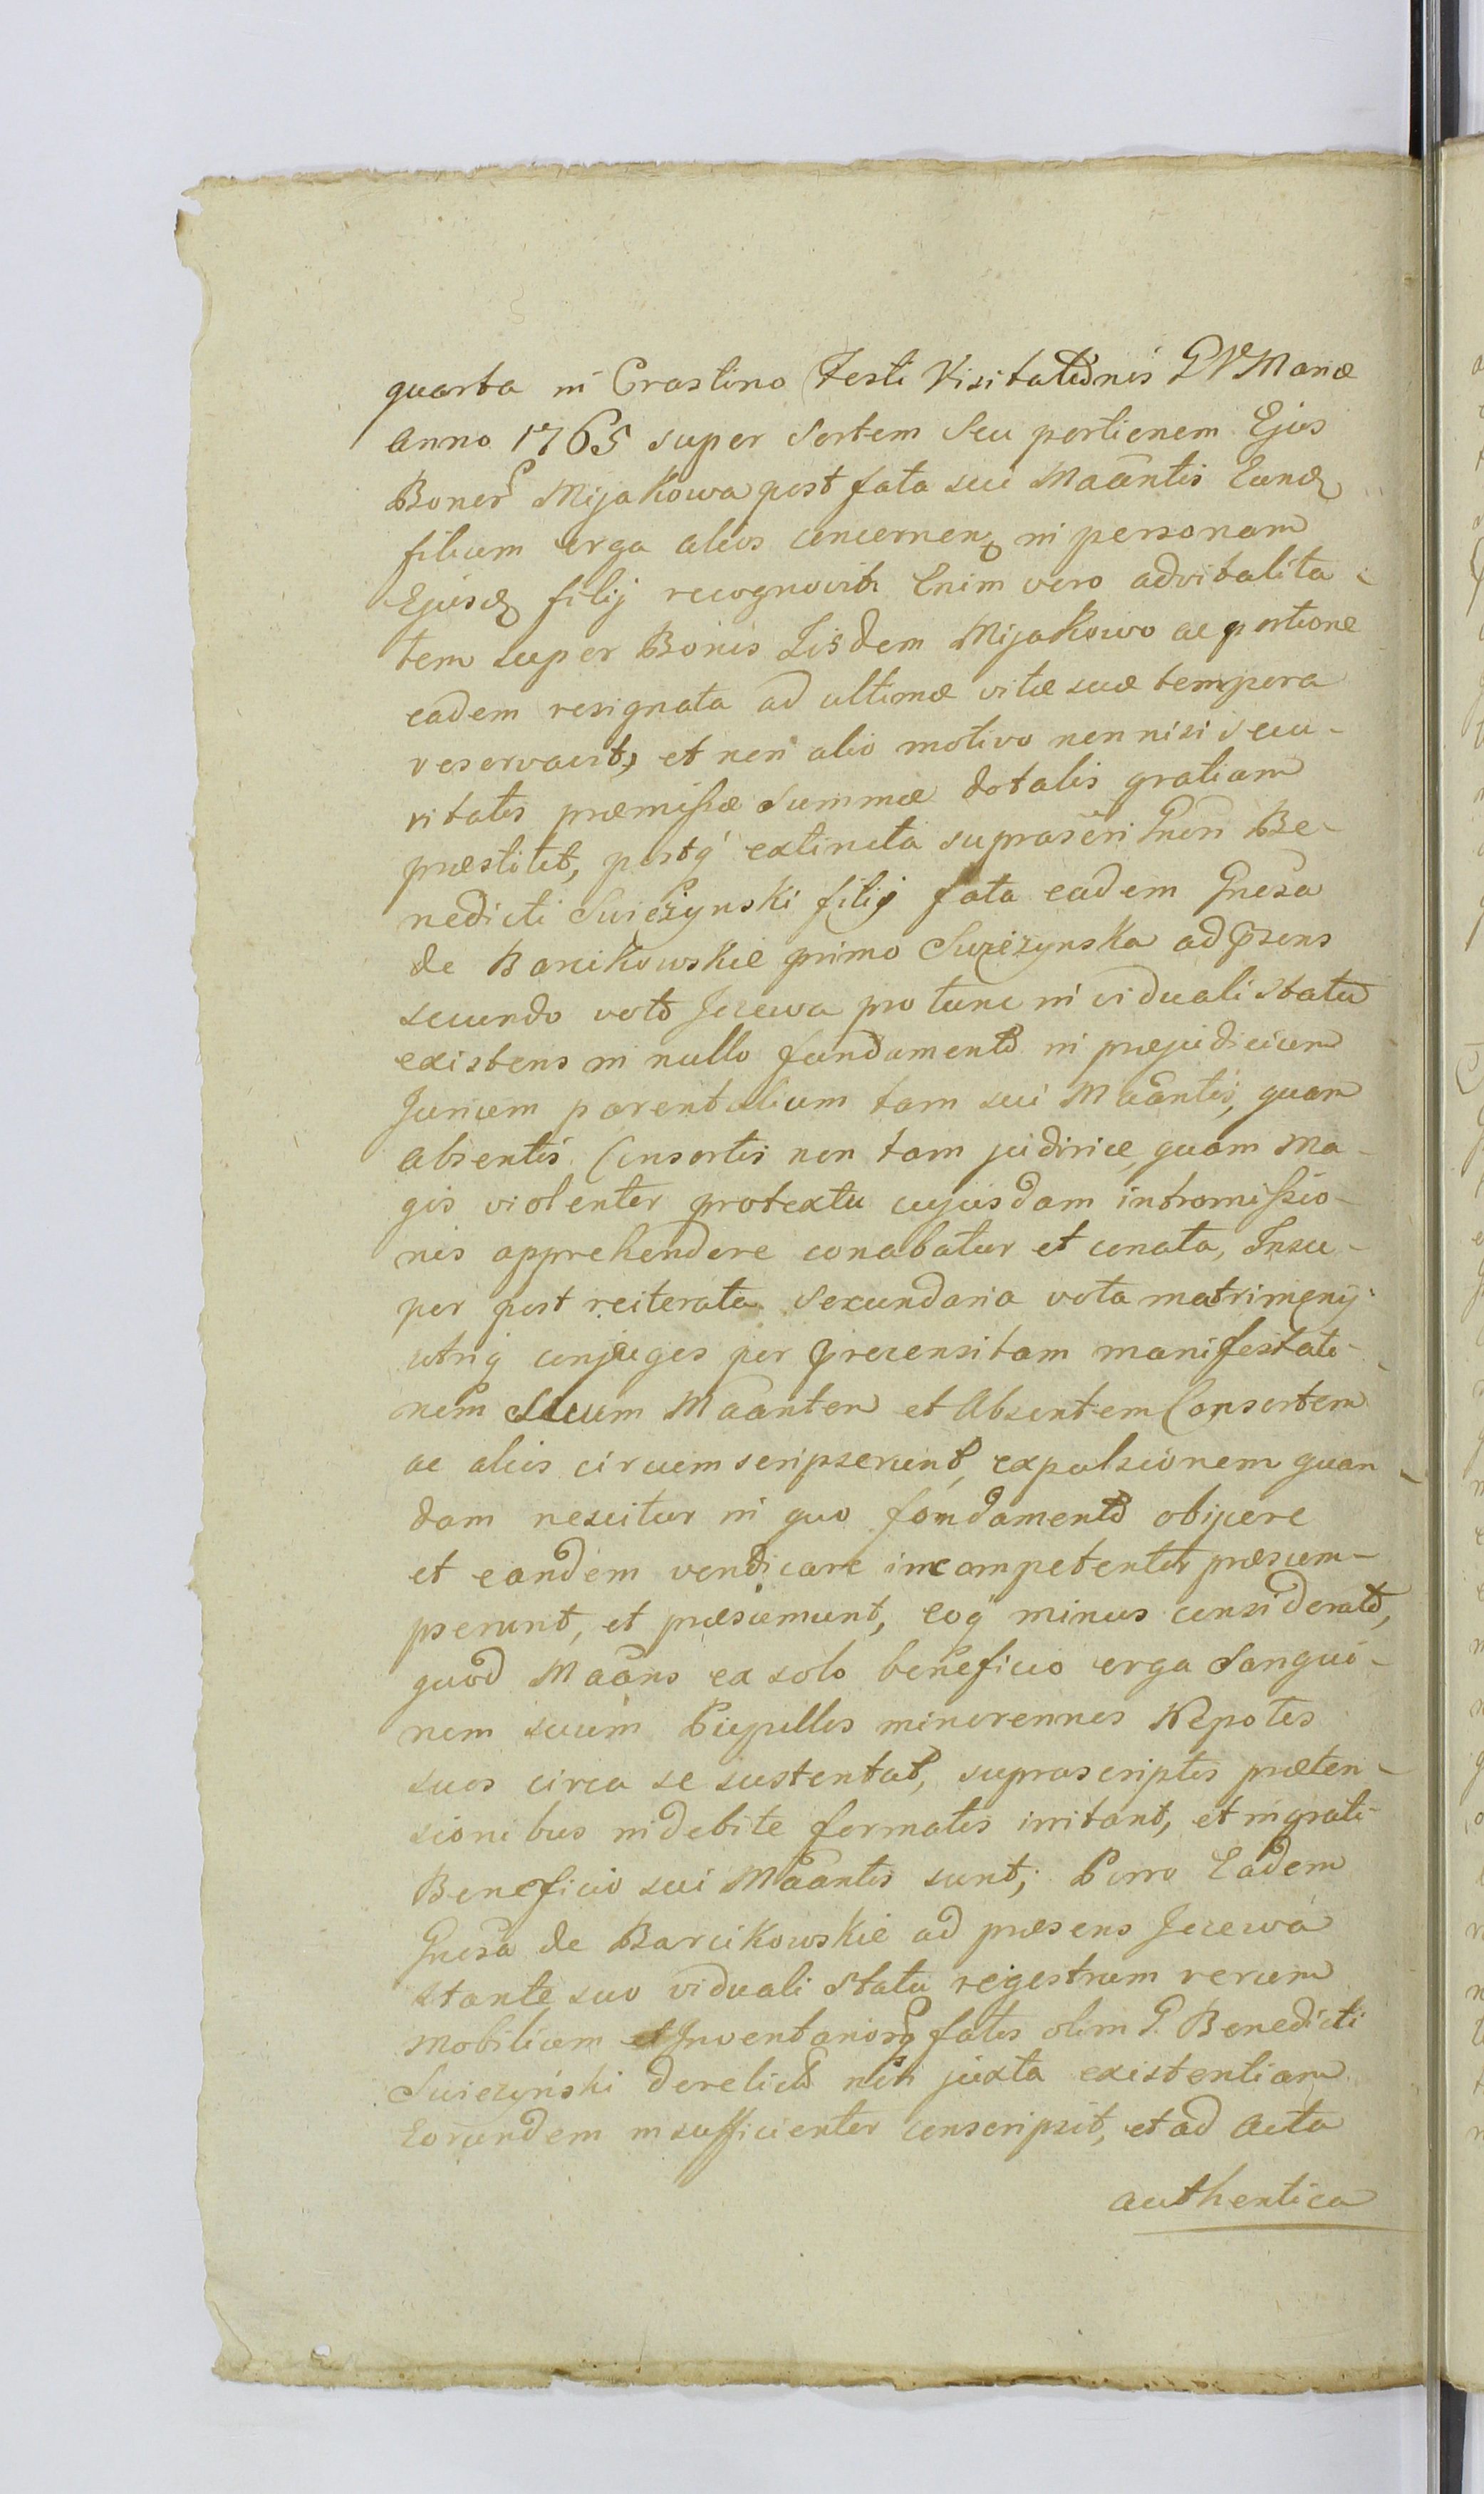 quarta in Crastino Festi Visitationis BVMariæ
Anno 1765 super Sortem Seu portionem Ejus
Bonor Mijakowa post fata sui Maantis Eand
filium erga alios concernen in personam
Ejusd filij recognovit Enim vero advitalita-
tem super Bonis Iisdem Mijakowo ac portione
eadem resignata ad ultimæ vitæ suæ tempora
reservavit, et non alio motivo non nisi secu-
ritatis præmissæ Summæ dotalis gratiam
præstitit, postq extincta suprascri Gnosi Be-
nedicti Swieżynski filij fata eadem Gnesa
de Barcikowskie primo Swieżynska ad præsens
secundo voto Jeżewa pro tunc in viduali Statu
existens in nullo fundamento in præjudicium
Jurium parentalium tam sui Maantis, quam
absentis Consortis non tam juridice, quam Ma-
gis violenter protextu cujusdam intromissio-
nis apprehendere conabatur et conata, Insu-
per post reiterata Secundaria vota matrimonij
utriq conjuges per præcensitam manifestatio-
nem Suum Maantem et Absentem Consortem
ac alios circumscripserunt, expulsionem quan-
dam nescitur in quo fundamento obijcere
et eandem vendicare incompetenter præsum-
pserunt, et præsumunt, eoq minus considerato,
quod Maans ex solo beneficio erga Sangui-
nem suum Pupillos minorennes Nepotes
suos circa se sustentat, suprascriptis præten-
sionibus indebite formatis irritant, et ingrati
Beneficio sui Maantis sunt; Porro Eadem
Gnesa de Barcikowskie ad præsens Jeżewa
stante suo viduali Statu regestrum rerum
Mobilium et Inventariorq fatis olim G. Benedicti
Swieżyński derelict non juxta existentiam
Eorundem insufficienter conscripsit, et ad Acta
authentica